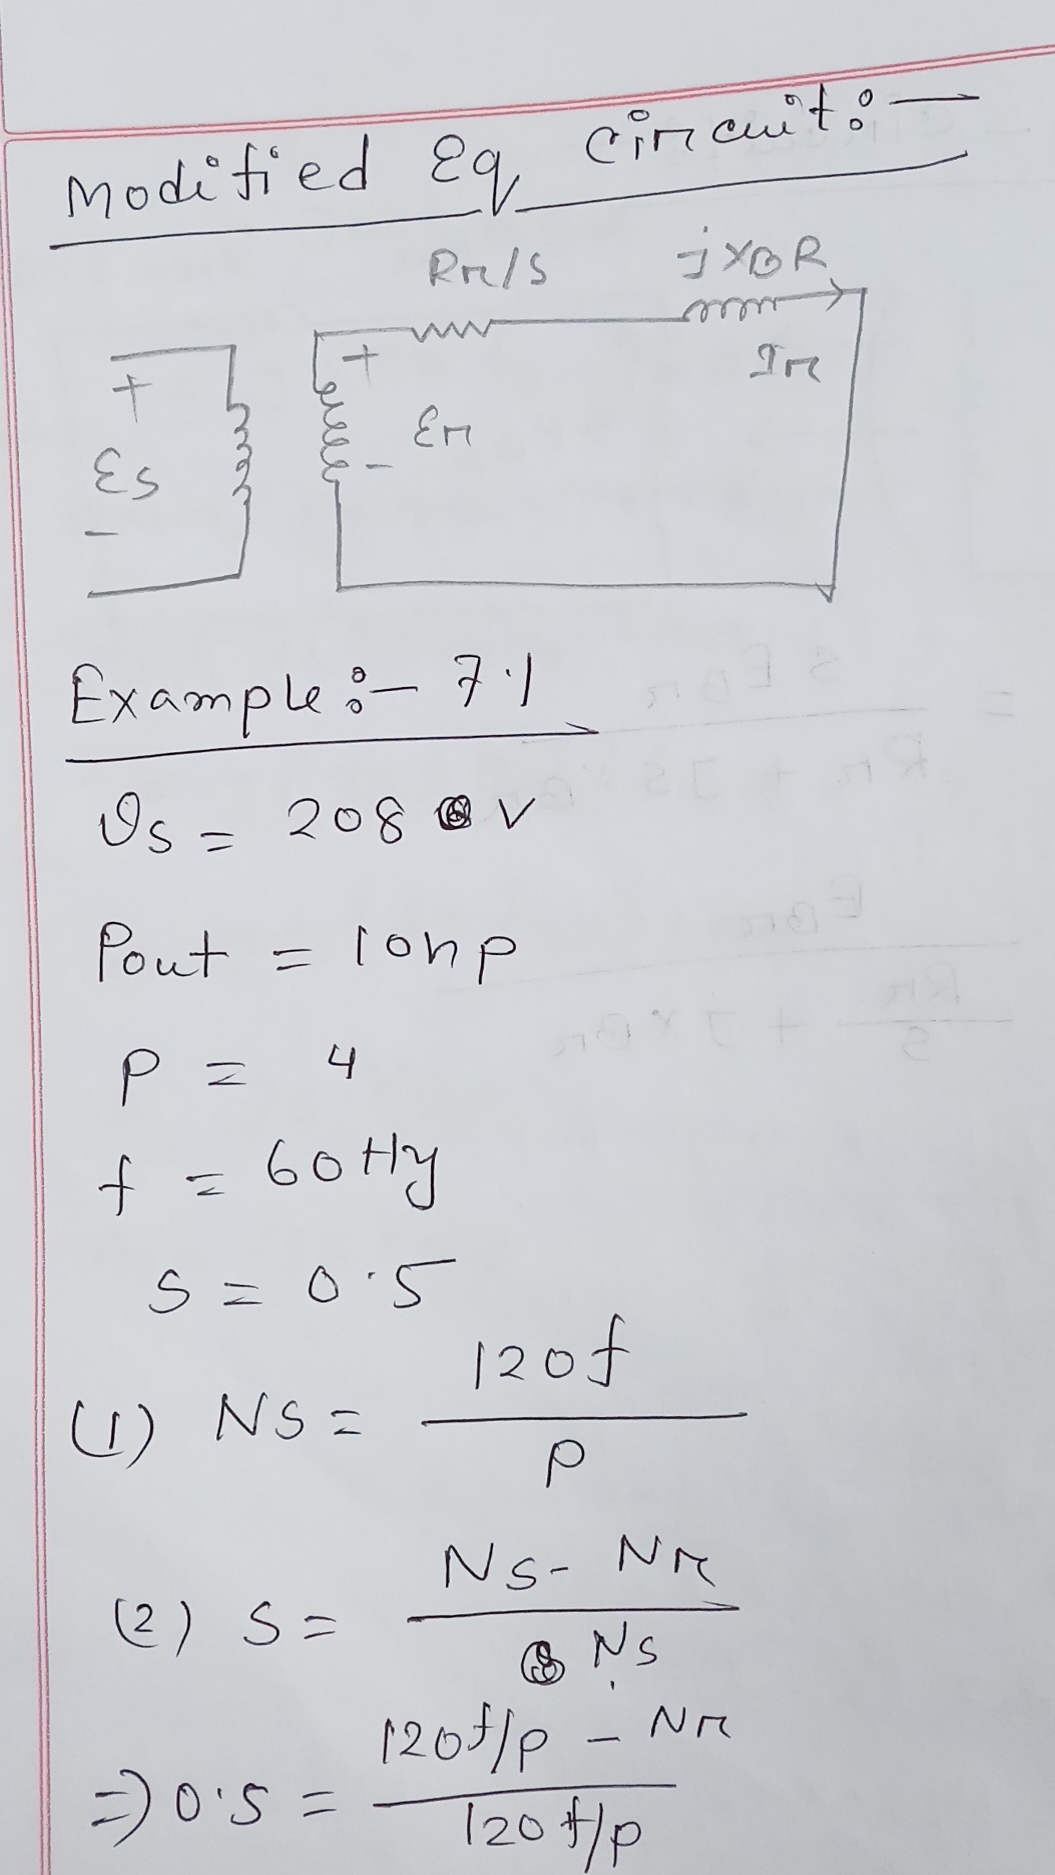 Modified Eq circuit:-
Rr/s jXBR
+ + Ir
Es Er
- -
Example:- 7.1
Vs = 208 V
Pout = 10hp
P = 4
f = 60Hz
S = 0.5
(1) NS = 120f / P
(2) S = NS - Nr / NS
=> 0.5 = 120f/p - Nr / 120f/p